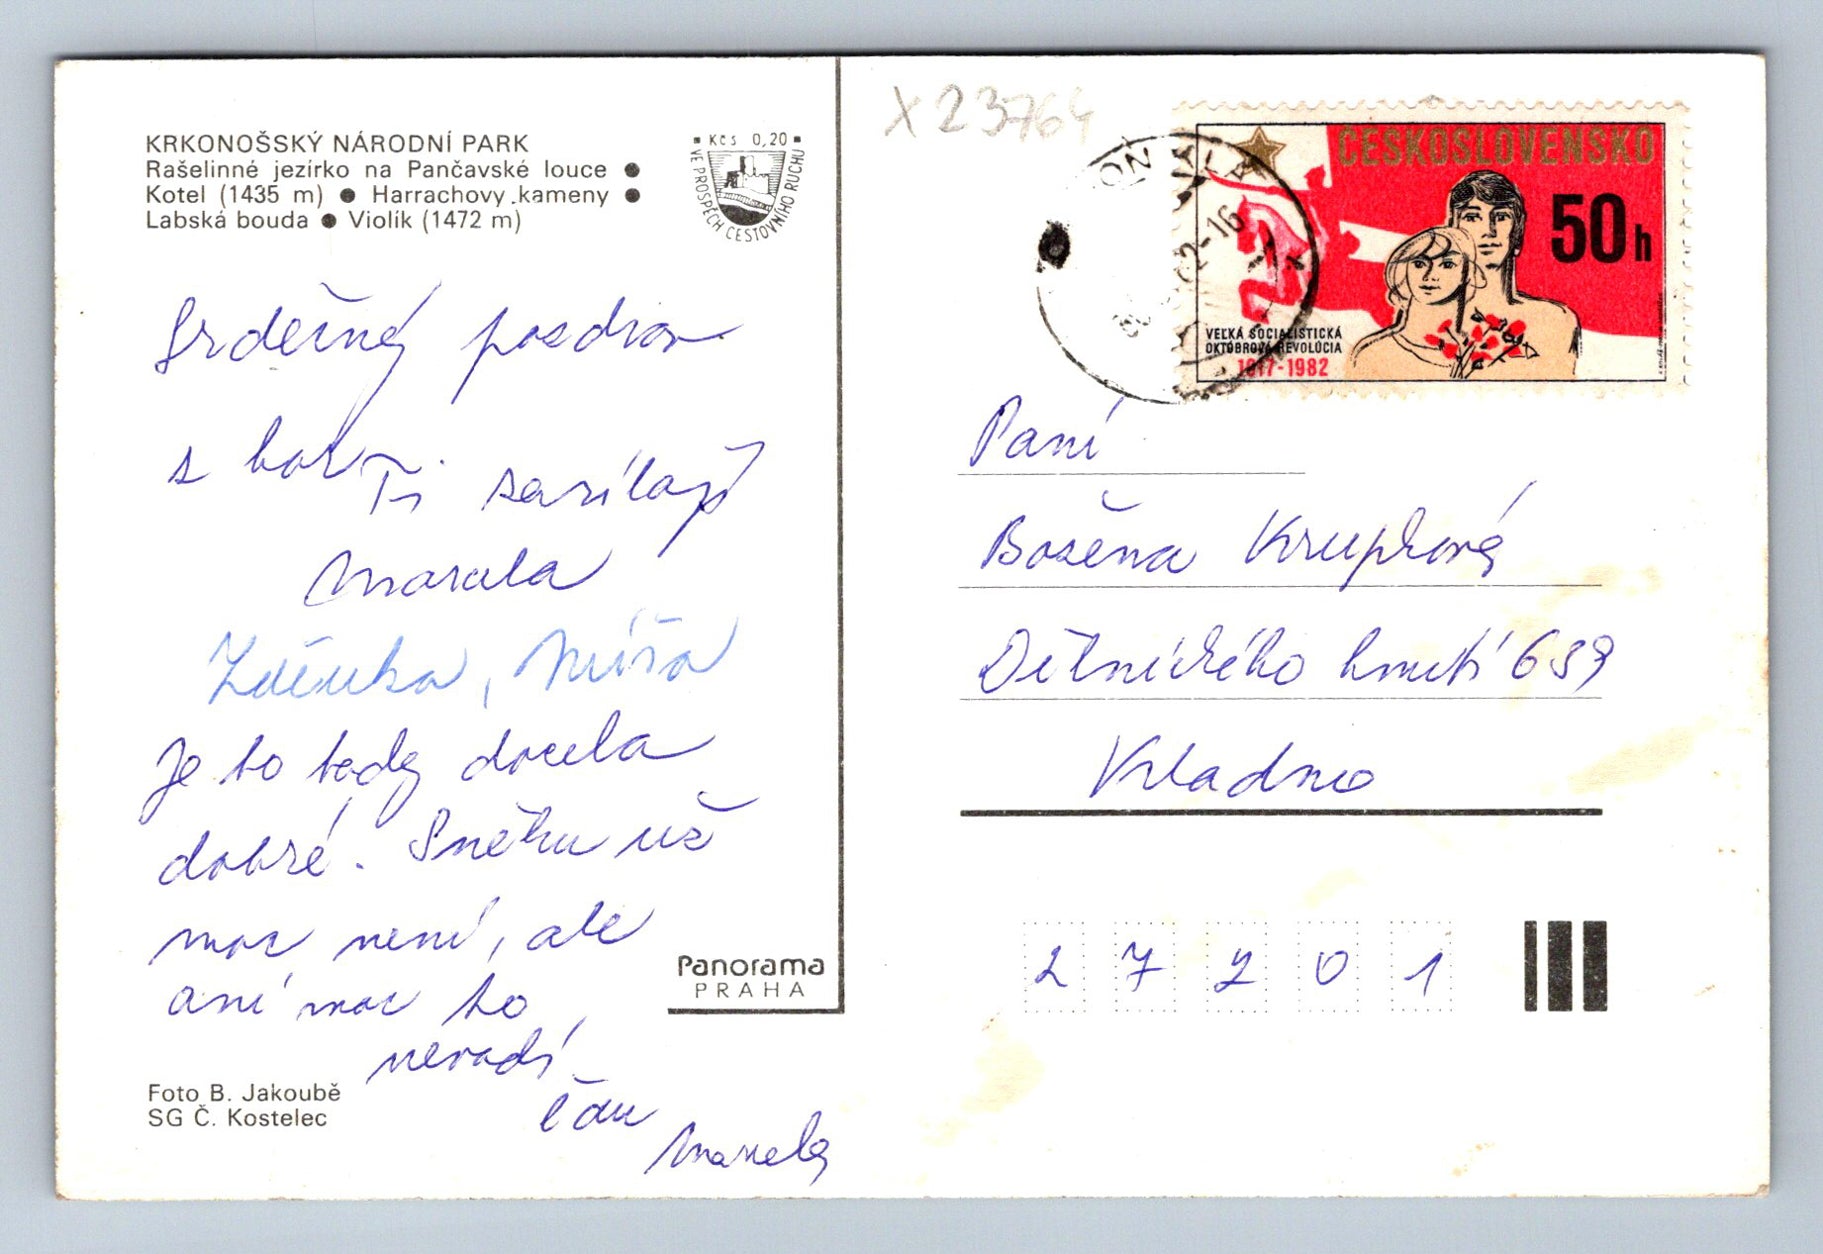 KRKONOŠSKÝ NÁRODNÍ PARK
Rašelinné jezírko na Pančavské louce ●
Kotel (1435 m) ● Harrachovy kameny ●
Labská bouda ● Violík (1472 m)
Kčs 0,20
VE PROSPĚCH CESTOVNÍHO RUCHU
Srdečný pozdrav
z hor Ti zasílají
Marcela
Zdeňka, Míša
Je to tady docela
dobré. Sněhu už
moc není, ale
ani moc to
nevadí.
Čau
Marcela
Panorama
PRAHA
Foto B. Jakoubě
SG Č. Kostelec
X 23764
ČESKOSLOVENSKO
50 h
VEĽKÁ SOCIALISTICKÁ
OKTÓBROVÁ REVOLÚCIA
1917-1982
Paní
Božena Krupková
Dělnického hnutí 639
Kladno
27201